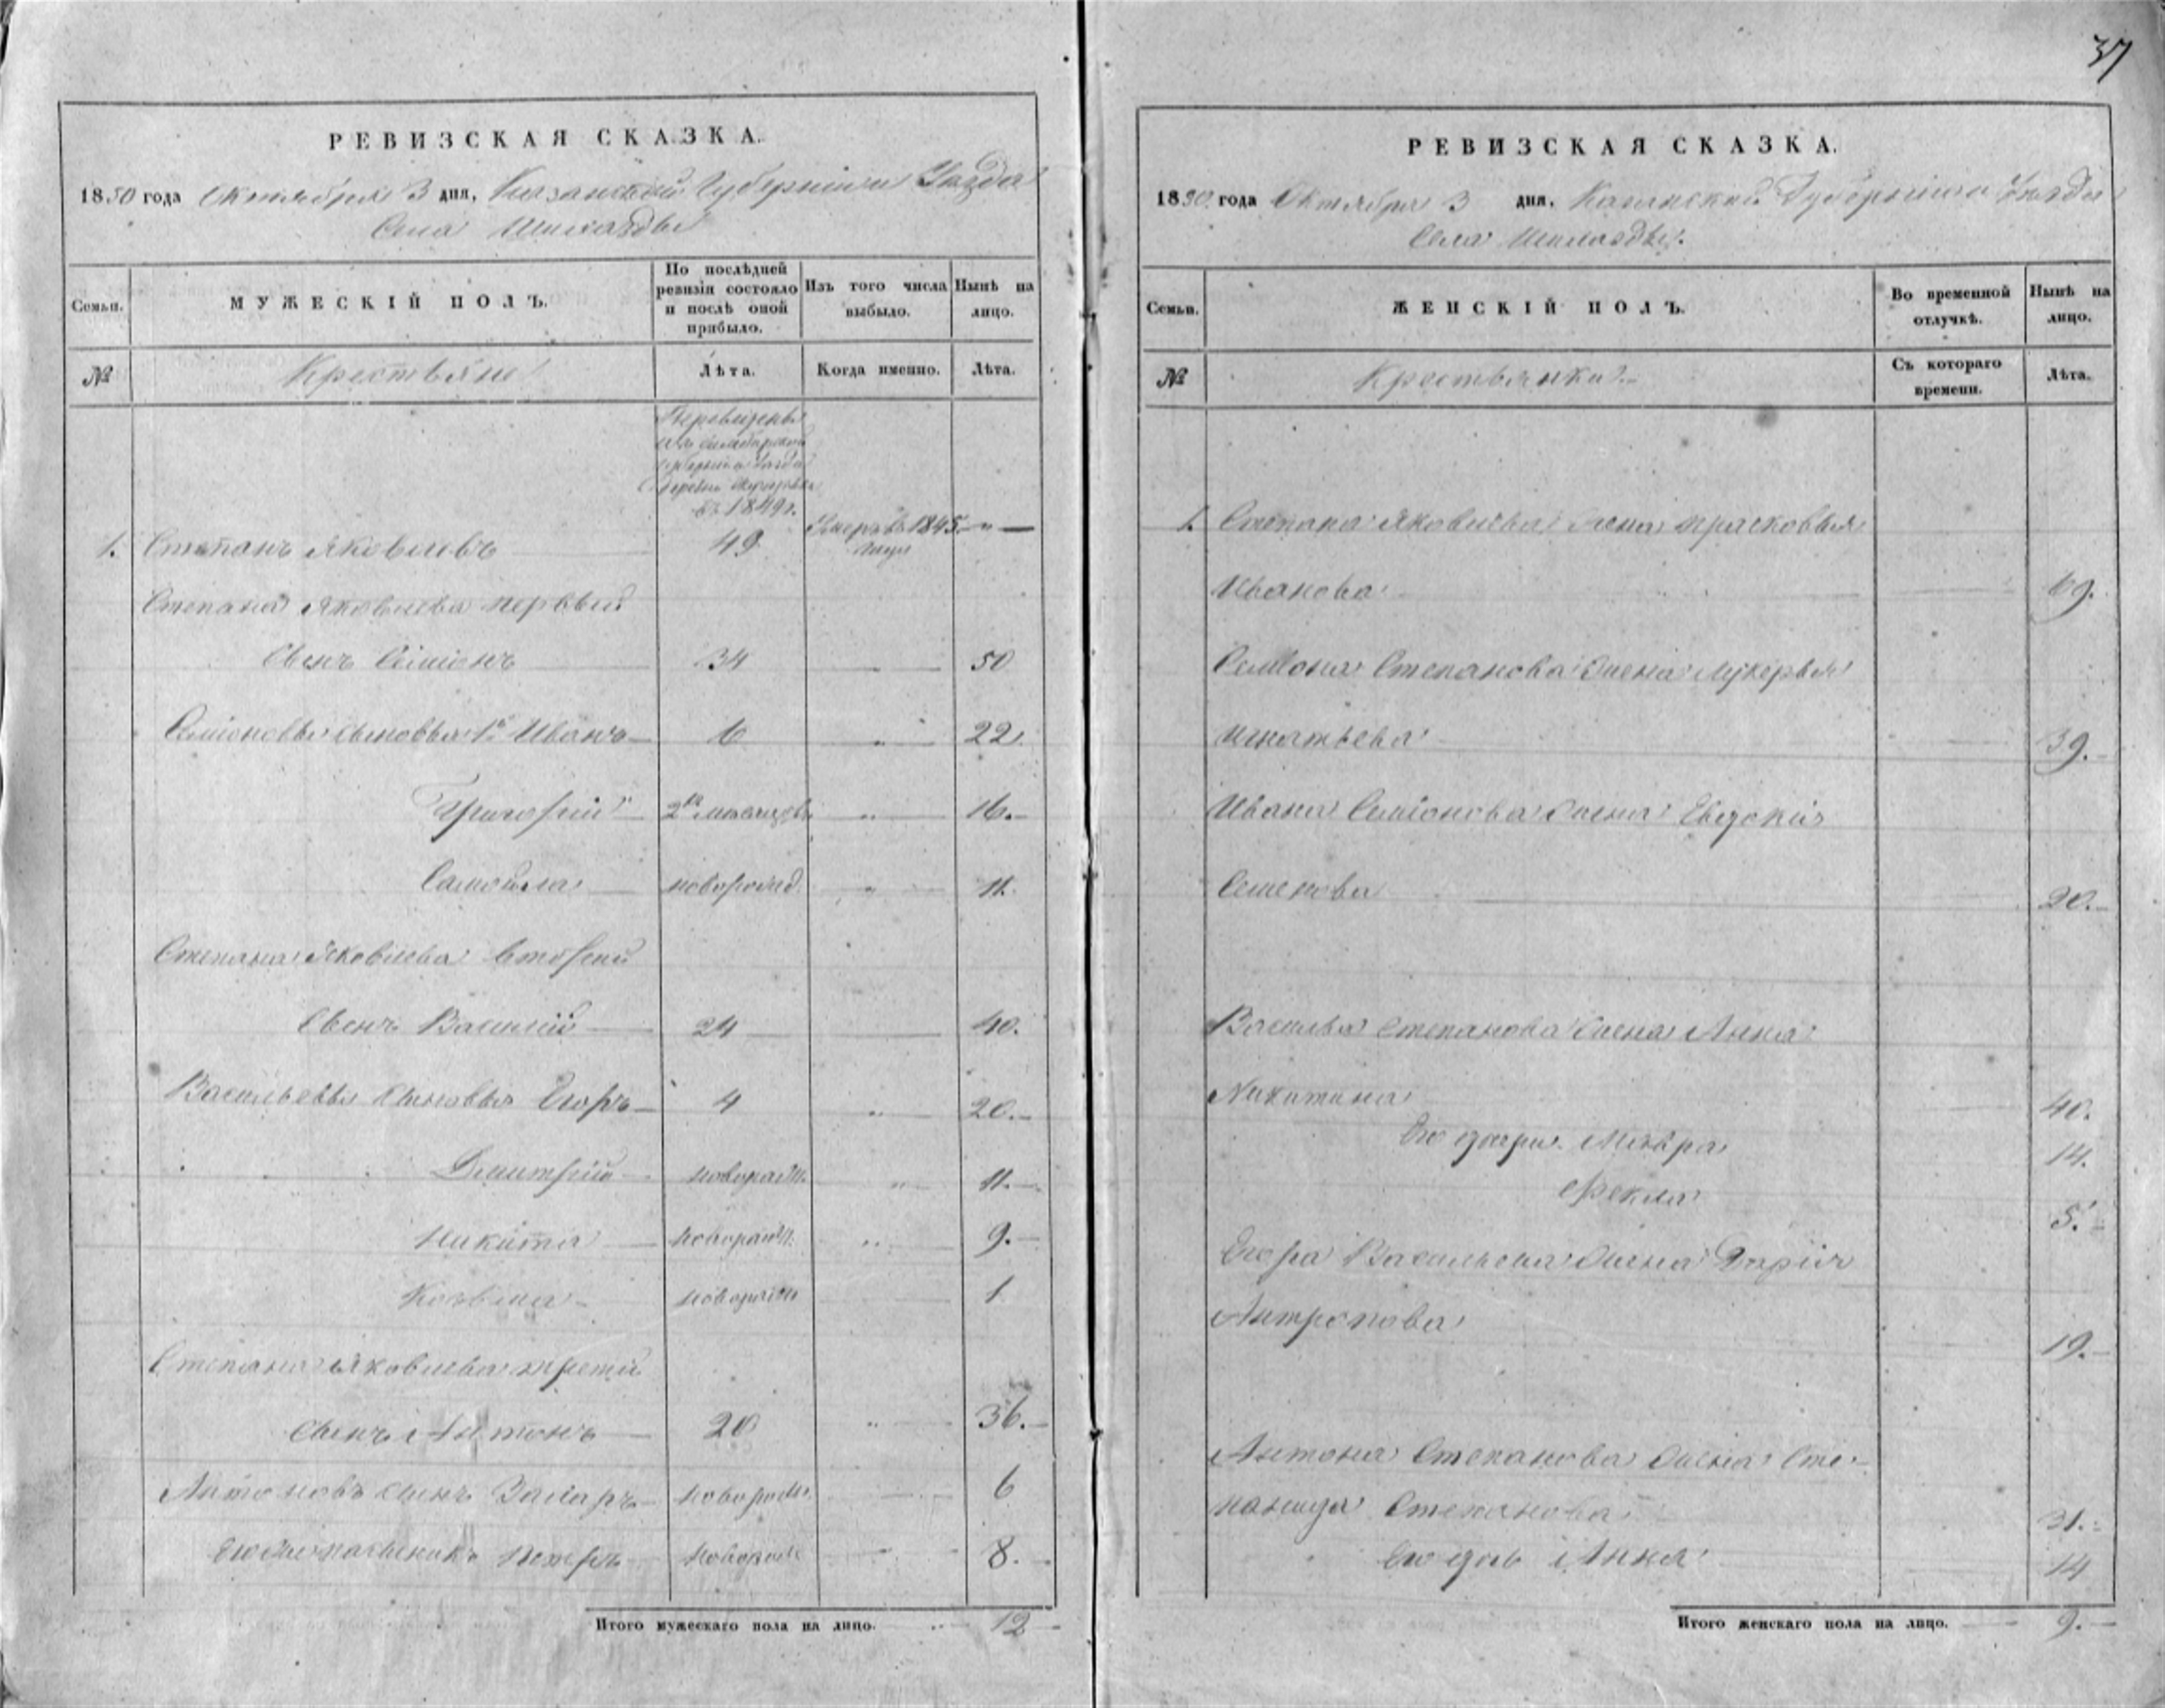 37
РЕВИЗСКАЯ СКАЗКА.
1850 года Октября 3 дня, Казанской Губернии Уезда
Села
Семьи.
МУЖЕСКІЙ ПОЛЪ.
По послѣдней ревизіи состояло и послѣ оной прибыло.
Изъ того числа выбыло.
Нынѣ на лицо.
№
Крестьяне
Лѣта.
Когда именно.
Лѣта.
въ 1849 г.
1. Степанъ Яковлевъ 49 Умеръ въ 1845 „ —
Степана Яковлева первый
сынъ Семіонъ 34 „ 50
Семіоновы сыновья 1й Иванъ 6 „ 22.
Григорій 2хъ мѣсяцовъ „ 16.
Самойла новорожд. „ 11.
Степана Яковлева второй
сынъ Василій 24 40.
Васильевы сыновья Егоръ 4 „ 20.
Дмитрій новорожд. „ 11.
Никита новорожд. „ 9.
Козьма новорожд 1
Степана Яковлева третій
сынъ Антонъ 20 „ 36.
Антоновъ сынъ Захаръ новорож. 6
Петръ новорож 8.
Итого мужескаго пола на лицо. 12
РЕВИЗСКАЯ СКАЗКА.
1850 года Октября 3 дня, Казанской Губерніи Уезда
Села
Семьи.
ЖЕНСКІЙ ПОЛЪ.
Во временной отлучкѣ.
Нынѣ на лицо.
№
Крестьянки
Съ котораго времени.
Лѣта.
1. Степана Яковлева жена Прасковья
Иванова 69.
Семіона Степанова жена Лукерья
Игнатьева 39.
Ивана Семіонова жена Евдокія
Семенова 20.
Василья Степанова жена Анна
Никитина 40.
Его дочери. Мавра 14.
Фекла 5.
Егора Васильева жена Дарія
Антропова 19.
Антона Степанова жена Сте-
панида Степанова 31.
Его дочь Анна 14
Итого женскаго пола на лицо. 9.